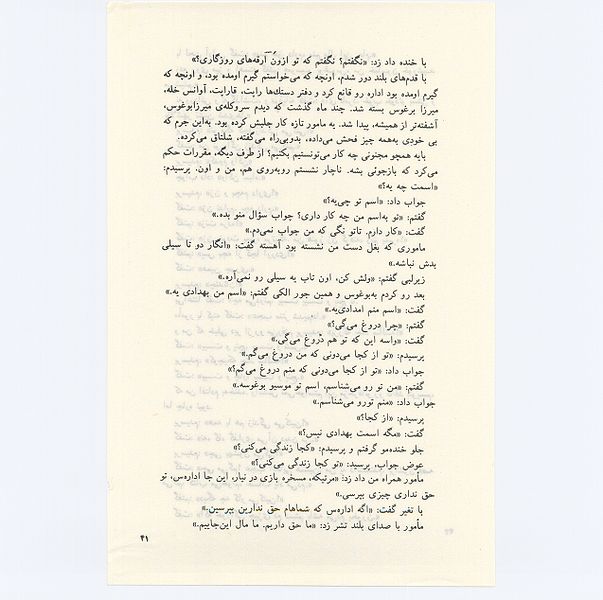 با خنده داد زد: «نگفتم؟ نگفتم که تو ازون آرقه‌های روزگاری؟»
با قدم‌های بلند دور شدم، اونچه که می‌خواستم گیرم اومده بود، و اونچه که
گیرم اومده بود اداره رو قانع کرد و دفتر دستک‌ها راپت، قاراپت، آوانس خله،
میرزا برغوس بسته شد. چند ماه گذشت که دیدم سروکله‌ی میرزابوغوس،
آشفته‌تر از همیشه، پیدا شد. یه مامور تازه کار جلبش کرده بود. به‌این جرم که
بی خودی به‌همه چیز فحش می‌داده، بدوبی‌راه می‌گفته، شلتاق می‌کرده.
بایه همچو مجنونی چه کار می‌تونستیم بکنیم؟ از طرف دیگه، مقررات حکم
می‌کرد که بازجوئی بشه. ناچار نشستم روبه‌روی هم، من و اون. پرسیدم:
«اسمت چه یه؟»
جواب داد: «اسم تو چی‌یه؟»
گفتم: «تو به‌اسم من چه کار داری؟ جواب سؤال منو بده.»
گفت: «کار دارم. تاتو نگی که من جواب نمی‌دم.»
ماموری که بغل دست من نشسته بود آهسته گفت: «انگار دو تا سیلی
بدش نباشه.»
زیرلبی گفتم: «ولش کن، اون تاب یه سیلی رو نمی‌آره.»
بعد رو کردم به‌بوغوس و همین جور الکی گفتم: «اسم من بهدادی یه.»
گفت: «اسم منم امدادی‌یه.»
گفتم: «چرا دروغ می‌گی؟»
گفت: «واسه این که تو هم دروغ می‌گی.»
پرسیدم: «تو از کجا می‌دونی که من دروغ می‌گم.»
جواب داد: «تو از کجا می‌دونی که منم دروغ می‌گم؟»
گفتم: «من تو رو می‌شناسم، اسم تو موسیو بوغوسه.»
جواب داد: «منم تورو می‌شناسم.»
پرسیدم: «از کجا؟»
گفت: «مگه اسمت بهدادی نیس؟»
جلو خنده‌مو گرفتم و پرسیدم: «کجا زندگی می‌کنی؟»
عوض جواب، پرسید: «تو کجا زندگی می‌کنی؟»
مأمور همراه من داد زد: «مرتیکه، مسخره بازی در نیار، این جا اداره‌س، تو
حق نداری چیزی بپرسی.»
با تغیر گفت: «اگه اداره‌س که شماهام حق ندارین بپرسین.»
مأمور با صدای بلند تشر زد: «ما حق داریم. ما مال این‌جاییم.»
۴۱